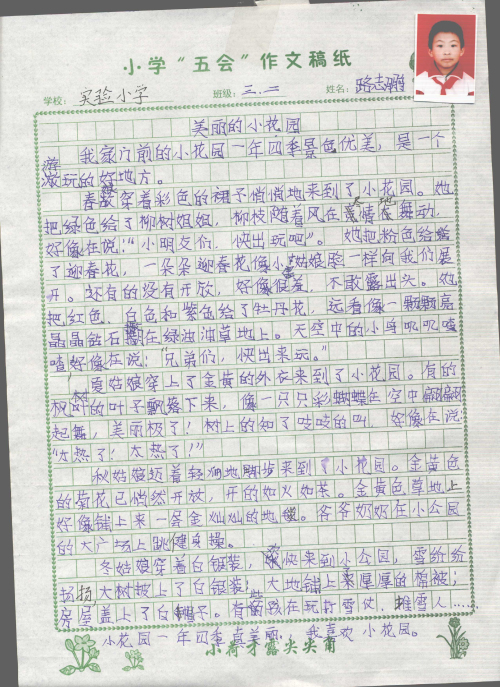 小学“五会”作文稿纸
学校：实验小学 班级：三.二 姓名：路志
美丽的小花园
我家门前的小花园一年四季景色优美，是一个
游玩的好地方。
春姑娘穿着彩色的裙子悄悄地来到了小花园。她
把绿色给了柳树姐姐，柳枝随着风在尽情地舞动，
好像在说：“小朋友们，快出来玩吧”。她把粉色给
了迎春花，一朵朵迎春花像小姑娘的脸一样向我们展
开。还有的没有开放，好像很羞，不敢露出头。她
把红色、白色和紫色给了牡丹花，远看像一颗颗亮
晶晶钻石在绿油油草地上。天空中的小鸟叽叽喳
喳好像在说：“兄弟们，快出来玩。”
夏姑娘穿上了金黄的外衣来到了小花园。有的
枫树的叶子飘落下来，像一只只彩蝴蝶在空中翩翩
起舞，美丽极了！树上的知了吱吱的叫，好像在说
“太热了！太热了！”
秋姑娘迈着轻盈地脚步来到了小花园。金黄色
的菊花已悄然开放，开的如火如荼。金黄色草地上
好像铺上来一条金灿灿的地毯。爷爷奶奶在小公园
的大广场上跳健身操。
冬姑娘穿着白银装，欢快来到小公园，雪纷纷
扬扬大树披上了白银装；大地铺上来厚厚的棉被；
房屋盖上了白帽子。有些在玩打雪仗，堆雪人……
小花园一年四季真美丽，我喜欢小花园。
小荷才露尖尖角